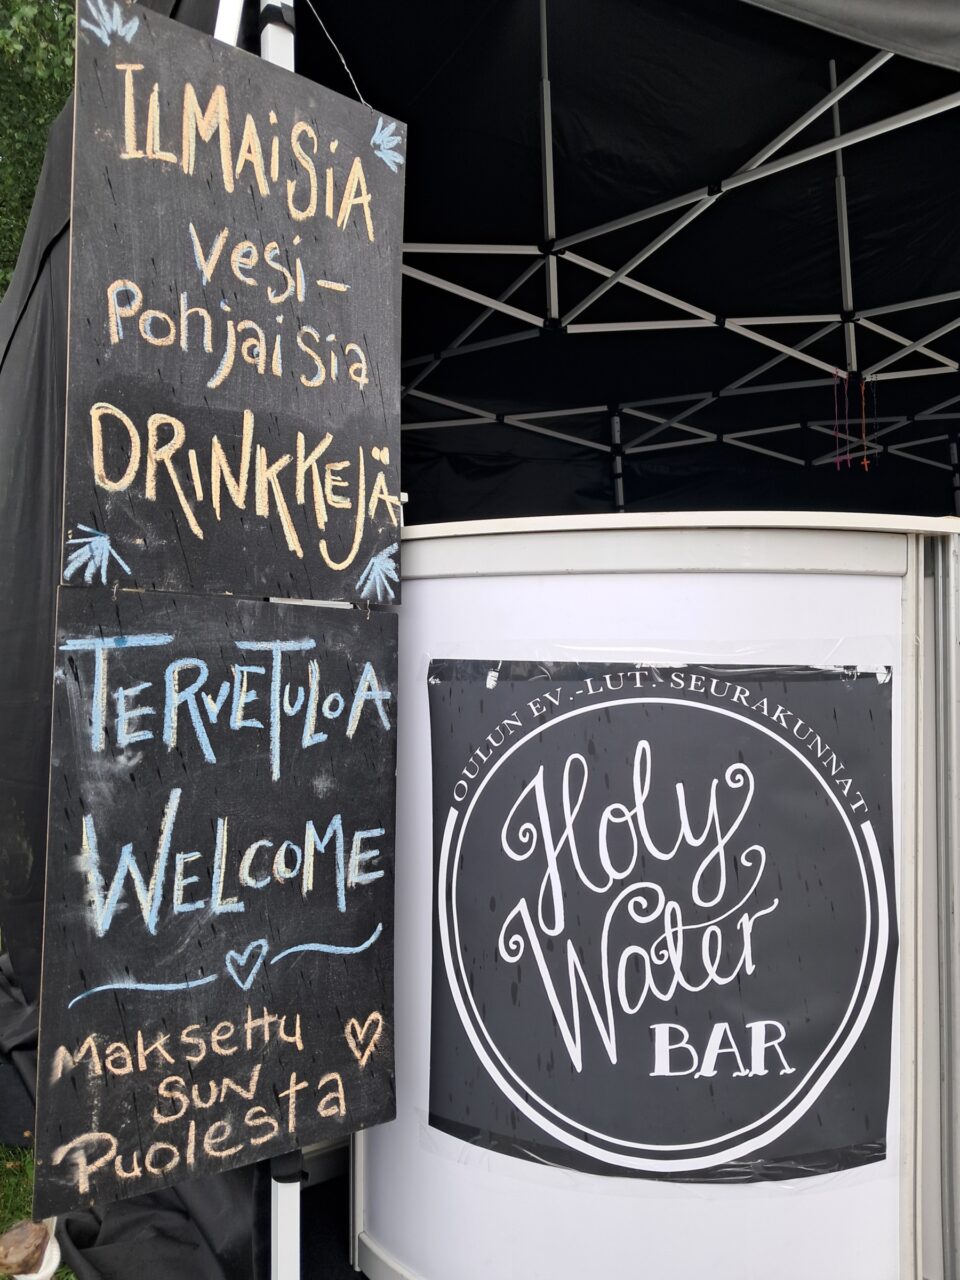 ILMAISIA
vesi-
Pohjaisia
DRINKKEJÄ
TERVETULOA
WELCOME
Maksettu
SUN
Puolesta
OULUN EV.-LUT. SEURAKUNNAT
Holy
Water
BAR